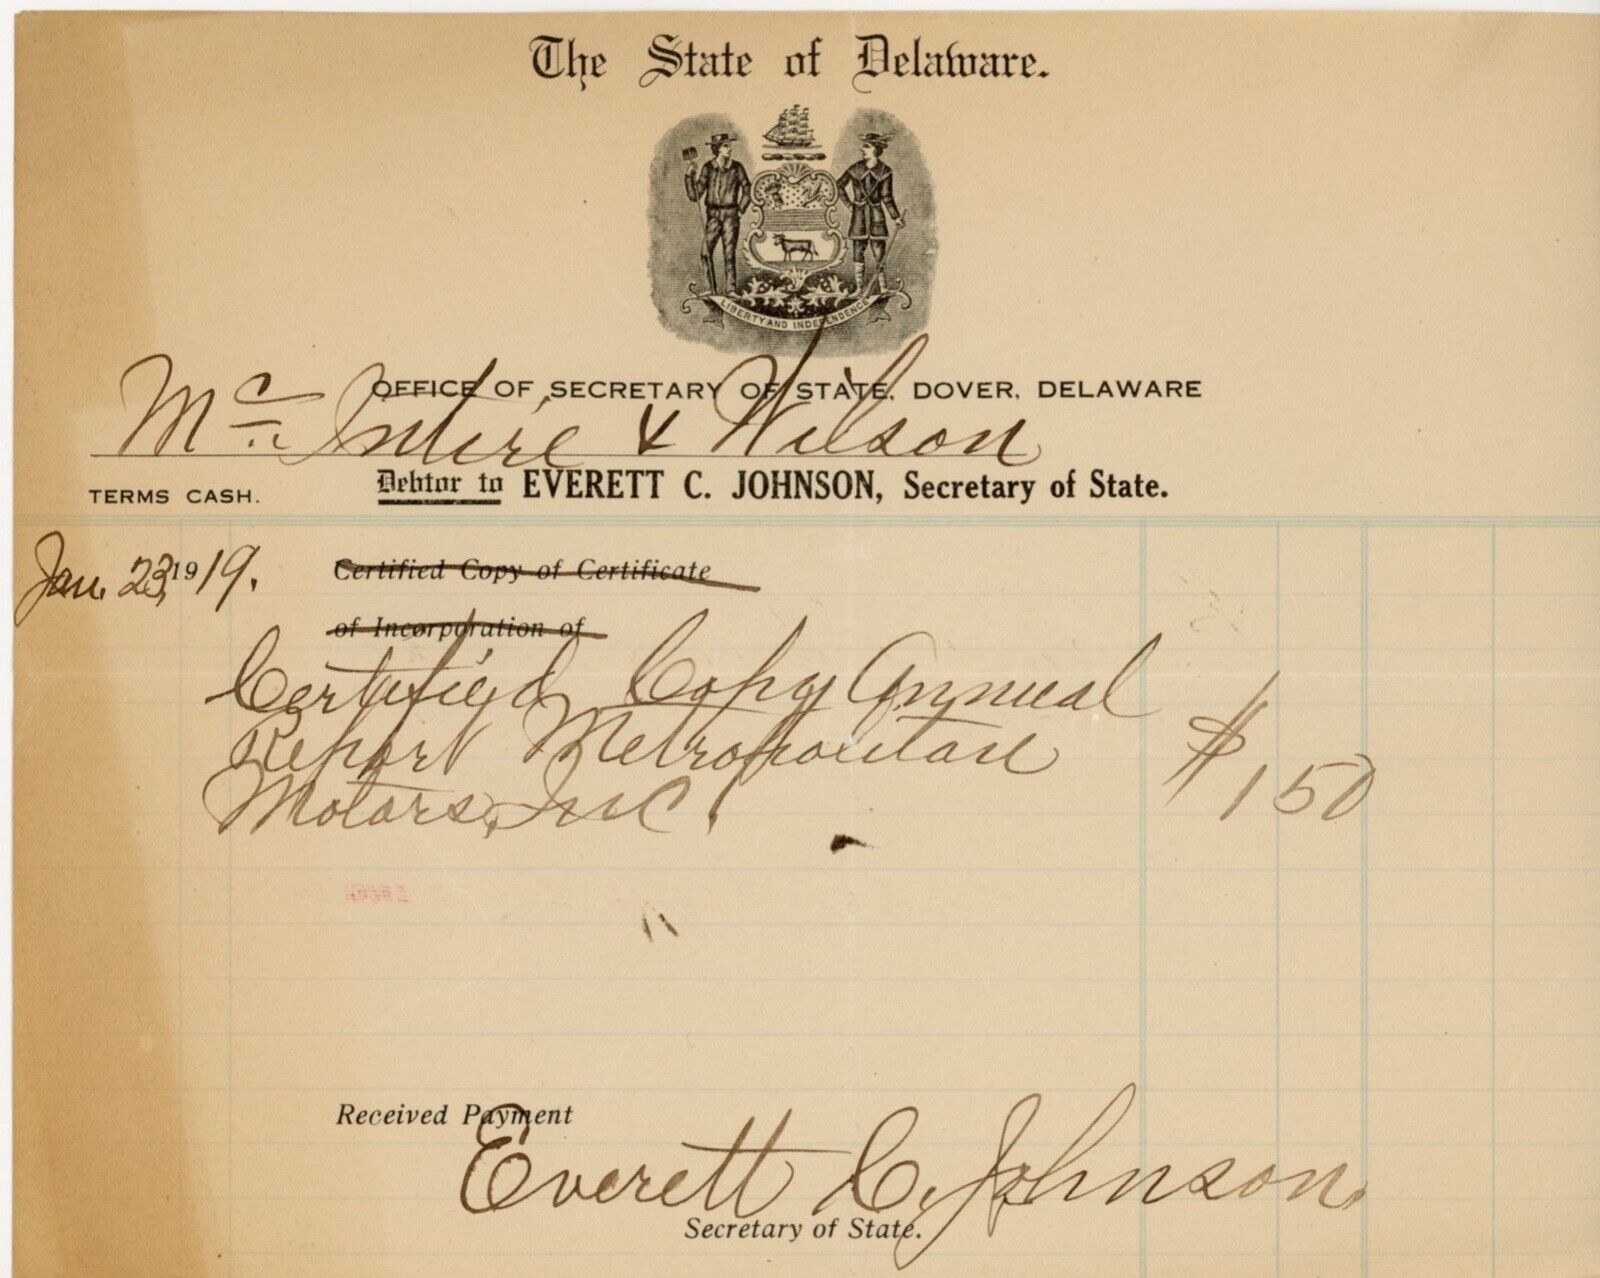 The State of Delaware.
LIBERTY AND INDEPENDENCE
OFFICE OF SECRETARY OF STATE, DOVER, DELAWARE
Mc Intire & Wilson
TERMS CASH.
Debtor to EVERETT C. JOHNSON, Secretary of State.
Jan. 23, 1919.
Certified Copy of Certificate
of Incorporation of
Certified Copy Annual
Report Metropolitan
Motors, Inc.
$ 1 50
Received Payment
Everett C. Johnson.
Secretary of State.